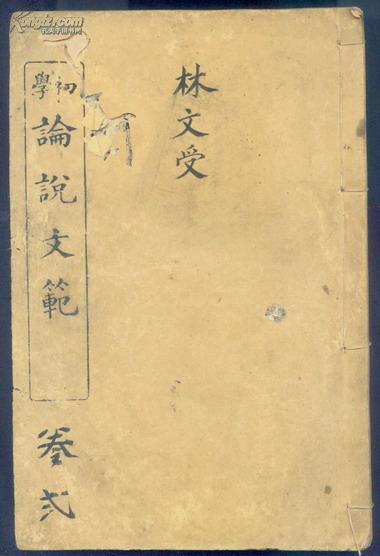 林文受
初學
論說文範
卷弍
Kongfz.com
孔夫子旧书网